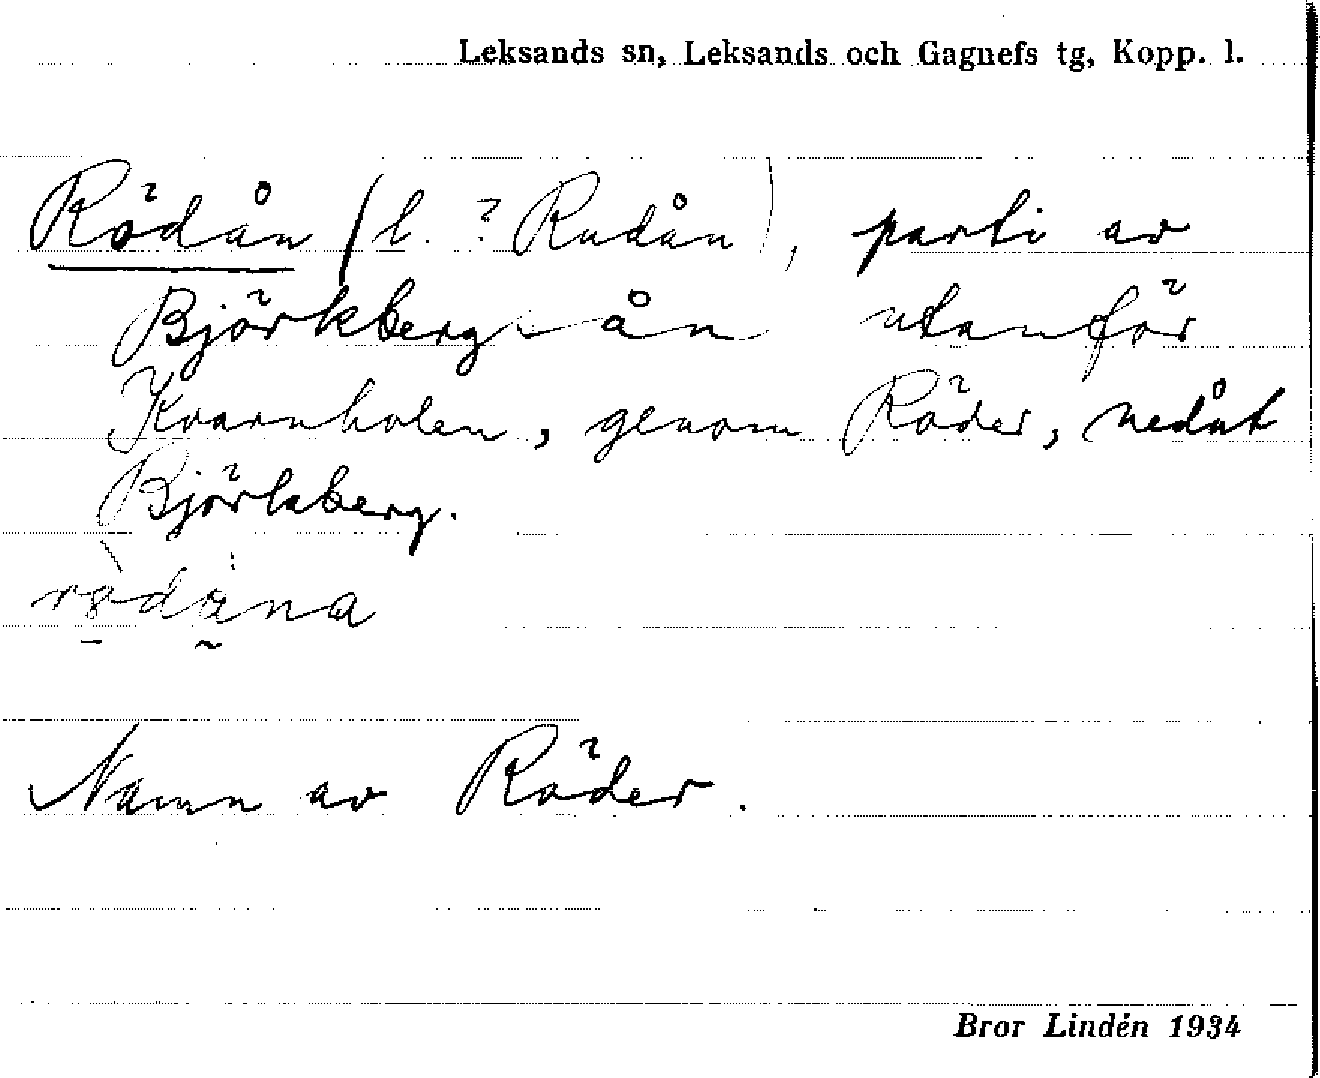 Leksands sn, Leksands och Gagnefs tg, Kopp. l.
Rödån (l. ? Rudån), parti av
Björkberg-ån utanför
Kvarnholen, genom Röder, nedåt
Björkberg.
Namn av Röder.
Bror Lindén 1934